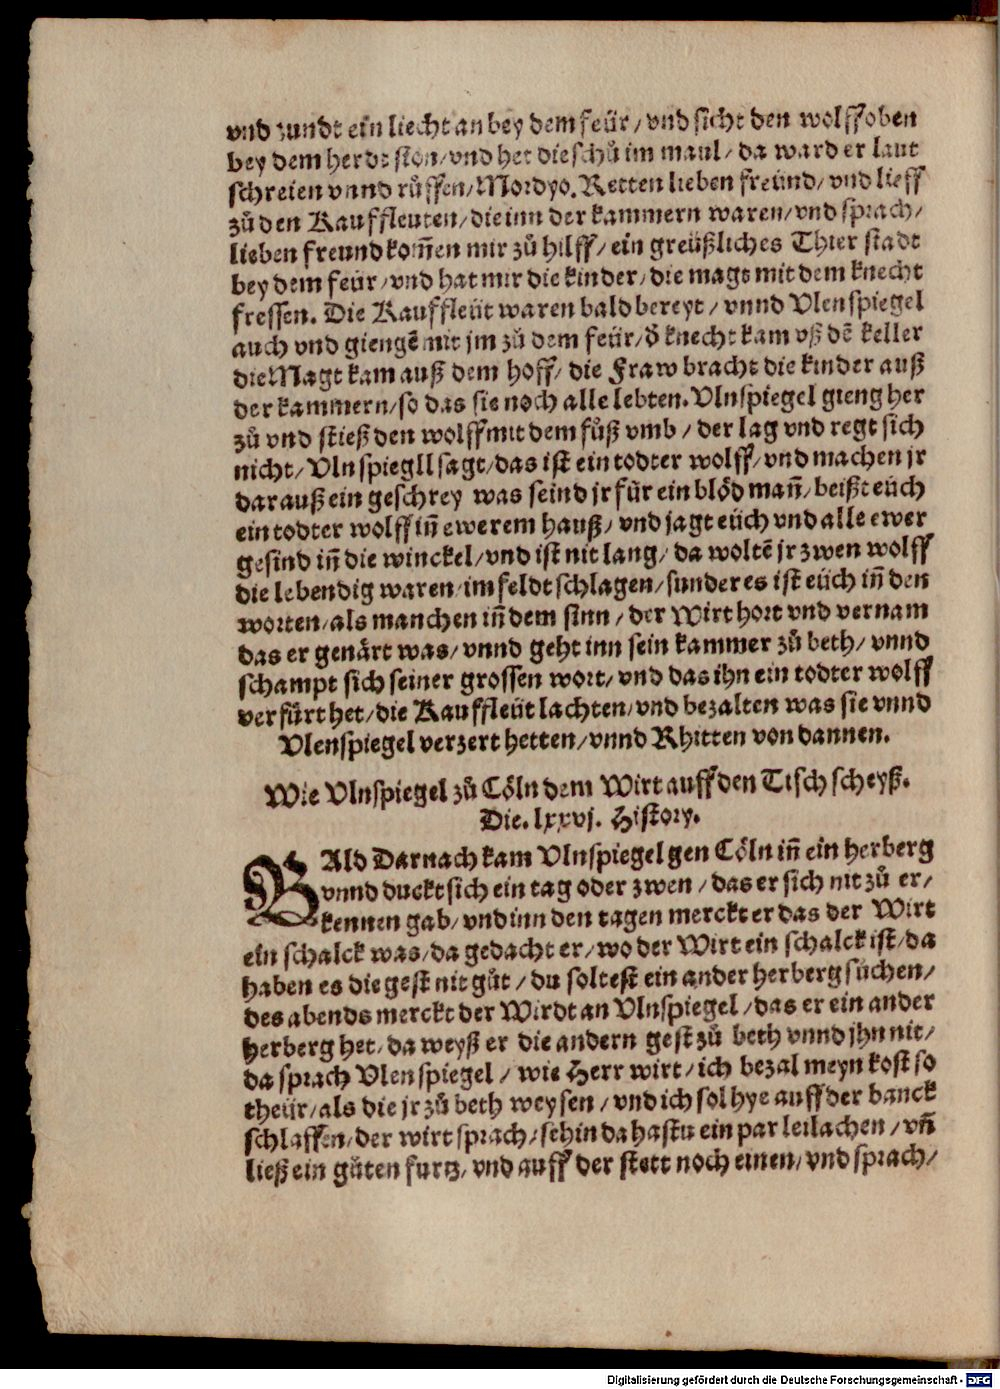 vnd zundt ein liecht an bey dem feür / vnd sicht den wolff oben
bey dem herdt ston / vnd het die schů im maul / da ward er laut
schreien vnnd růffen / Mordyo. Retten lieben freünd / vnd lieff
zů den Kauffleuten / die inn der kammern waren / vnd sprach /
lieben freund kom̄en mir zů hilff / ein greüßliches Thier stadt
bey dem feür / vnd hat mir die kinder / die magt mit dem knecht
fressen. Die Kauffleüt waren bald bereyt / vnnd Vlenspiegel
auch vnd giengē mit jm zů dem feür / d̄ knecht kam vß dē keller
die Magt kam auß dem hoff / die Fraw bracht die kinder auß
der kammern / so das sie noch alle lebten. Vlnspiegel gieng her
zů vnd stieß den wolff mit dem fůß vmb / der lag vnd regt sich
nicht / Vlnspiegll sagt / das ist ein todter wolff / vnd machen jr
darauß ein geschrey was seind jr für ein blöd man̄ / beißt eüch
ein todter wolff in̄ ewerem hauß / vnd jagt eüch vnd alle ewer
gesind in̄ die winckel / vnd ist nit lang / da woltē jr zwen wolff
die lebendig waren / im feldt schlagen / sunder es ist eüch in̄ den
worten / als manchen in̄ dem sinn / der Wirt hort vnd vernam
das er genärt was / vnnd geht inn sein kammer zů beth / vnnd
schampt sich seiner grossen wort / vnd das ihn ein todter wolff
verfürt het / die Kauffleüt lachten / vnd bezalten was sie vnnd
Vlenspiegel verzert hetten / vnnd Rhitten von dannen.
Wie Vlnspiegel zů Cöln dem Wirt auff den Tisch scheyß.
Die. lxxvj. History.
BAld Darnach kam Vlnspiegel gen Cöln in̄ ein herberg
vnnd duckt sich ein tag oder zwen / das er sich nit zů er /
kennen gab / vnd inn den tagen merckt er das der Wirt
ein schalck was / da gedacht er / wo der Wirt ein schalck ist / da
haben es die gest nit gůt / du soltest ein ander herberg sůchen /
des abends merckt der Wirdt an Vlnspiegel / das er ein ander
herberg het / da weyß er die andern gest zů beth vnnd jhn nit /
da sprach Vlenspiegel / wie Herr wirt / ich bezal meyn kost so
theür / als die jr zů beth weysen / vnd ich sol hye auff der banck
schlaffen / der wirt sprach / sehin da hastu ein par leilachen / vn̄
ließ ein gůten furtz / vnd auff der stett noch einen / vnd sprach /
Digitalisierung gefördert durch die Deutsche Forschungsgemeinschaft - DFG